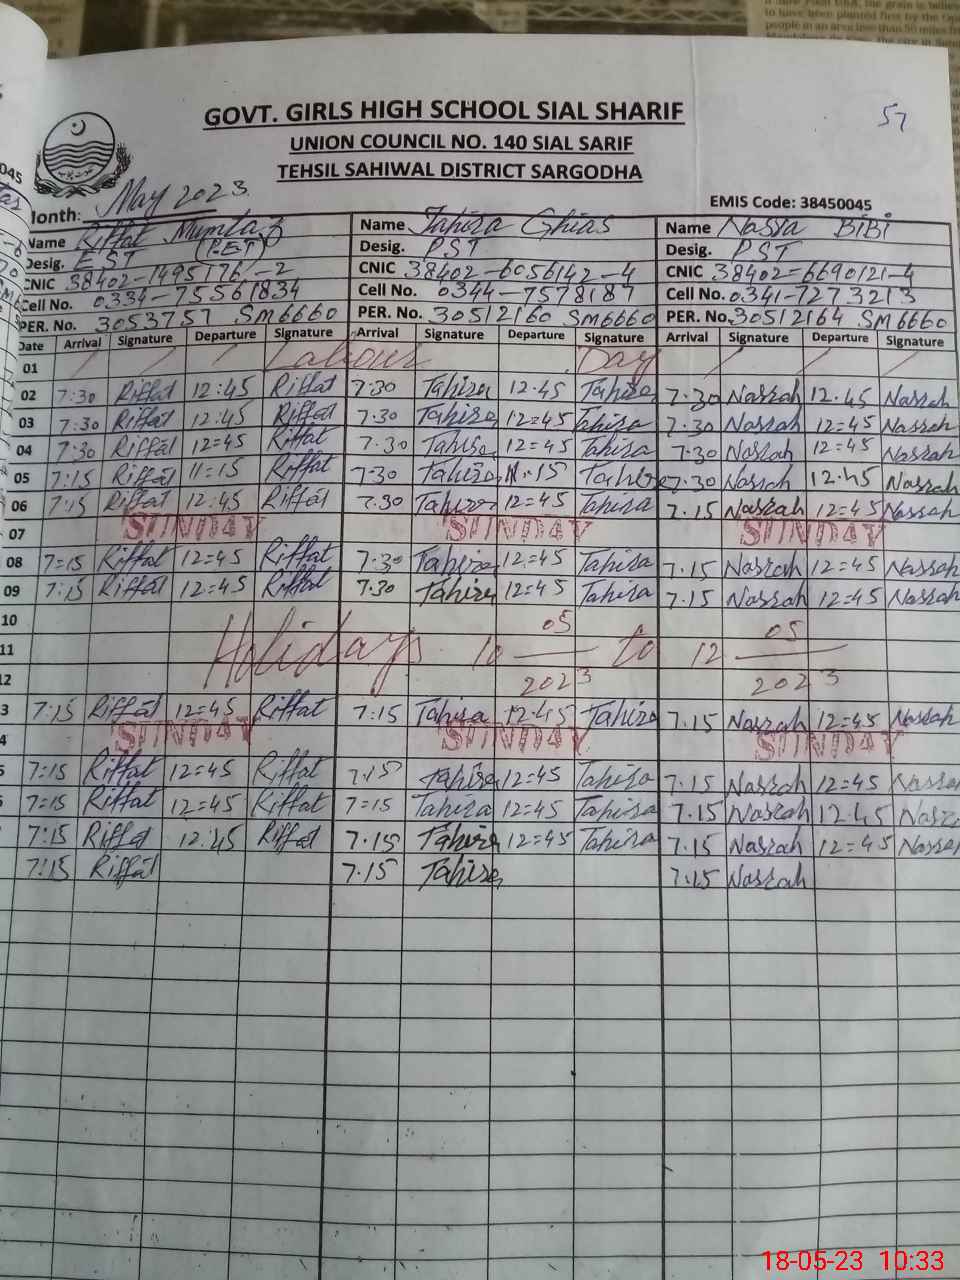 57
GOVT. GIRLS HIGH SCHOOL SIAL SHARIF
UNION COUNCIL NO. 140 SIAL SARIF
TEHSIL SAHIWAL DISTRICT SARGODHA
EMIS Code: 38450045
Month: May 2023.
Name Riffat Mumtaz Name Tahira Ghias Name Nasra BiBi
Desig. EST (PET) Desig. PST Desig. PST
CNIC 38402-1495176-2 CNIC 38402-6056142-4 CNIC 38402=6690121-4
Cell No. 0334-75561834 Cell No. 0344-7578187 Cell No. 0341-7273213
PER. No. 3053757 SM6660 PER. No. 30512160 SM6660 PER. No. 30512164 SM6660
Date Arrival Signature Departure Signature Arrival Signature Departure Signature Arrival Signature Departure Signature
01 Labour Day
02 7:30 Riffat 12:45 Riffat 7.30 Tahira 12.45 Tahira 7.30 Nasrah 12.45 Nasrah
03 7:30 Riffat 12:45 Riffat 7.30 Tahira 12=45 Tahira 7.30 Nasrah 12=45 Nasrah
04 7:30 Riffat 12=45 Riffat 7.30 Tahira 12=45 Tahira 7.30 Nasrah 12=45 Nasrah
05 7:15 Riffat 11=15 Riffat 7.30 Tahira 11.15 Tahira 7.30 Nasrah 12.45 Nasrah
06 7:15 Riffat 12:45 Riffat 7.30 Tahira 12=45 Tahira 7.15 Nasrah 12=45 Nasrah
07 SUNDAY SUNDAY SUNDAY
08 7=15 Riffat 12=45 Riffat 7.30 Tahira 12=45 Tahira 7.15 Nasrah 12=45 Nasrah
09 7:15 Riffat 12=45 Riffat 7.30 Tahira 12=45 Tahira 7.15 Nasrah 12=45 Nasrah
10 05 05
11 Holidays 10 to 12
12 2023 2023
3 7:15 Riffat 12=45 Riffat 7:15 Tahira 12.45 Tahira 7.15 Nasrah 12=45 Nasrah
4 SUNDAY SUNDAY SUNDAY
5 7:15 Riffat 12=45 Riffat 7.15 Tahira 12=45 Tahira 7.15 Nasrah 12=45 Nasrah
7=15 Riffat 12=45 Riffat 7=15 Tahira 12=45 Tahira 7.15 Nasrah 12.45
7:15 Riffat 12:45 Riffat 7.15 Tahira 12=45 Tahira 7.15 Nasrah 12=45
7:15 Riffat 7.15 Tahira 7.15 Nasrah
18-05-23 10:33